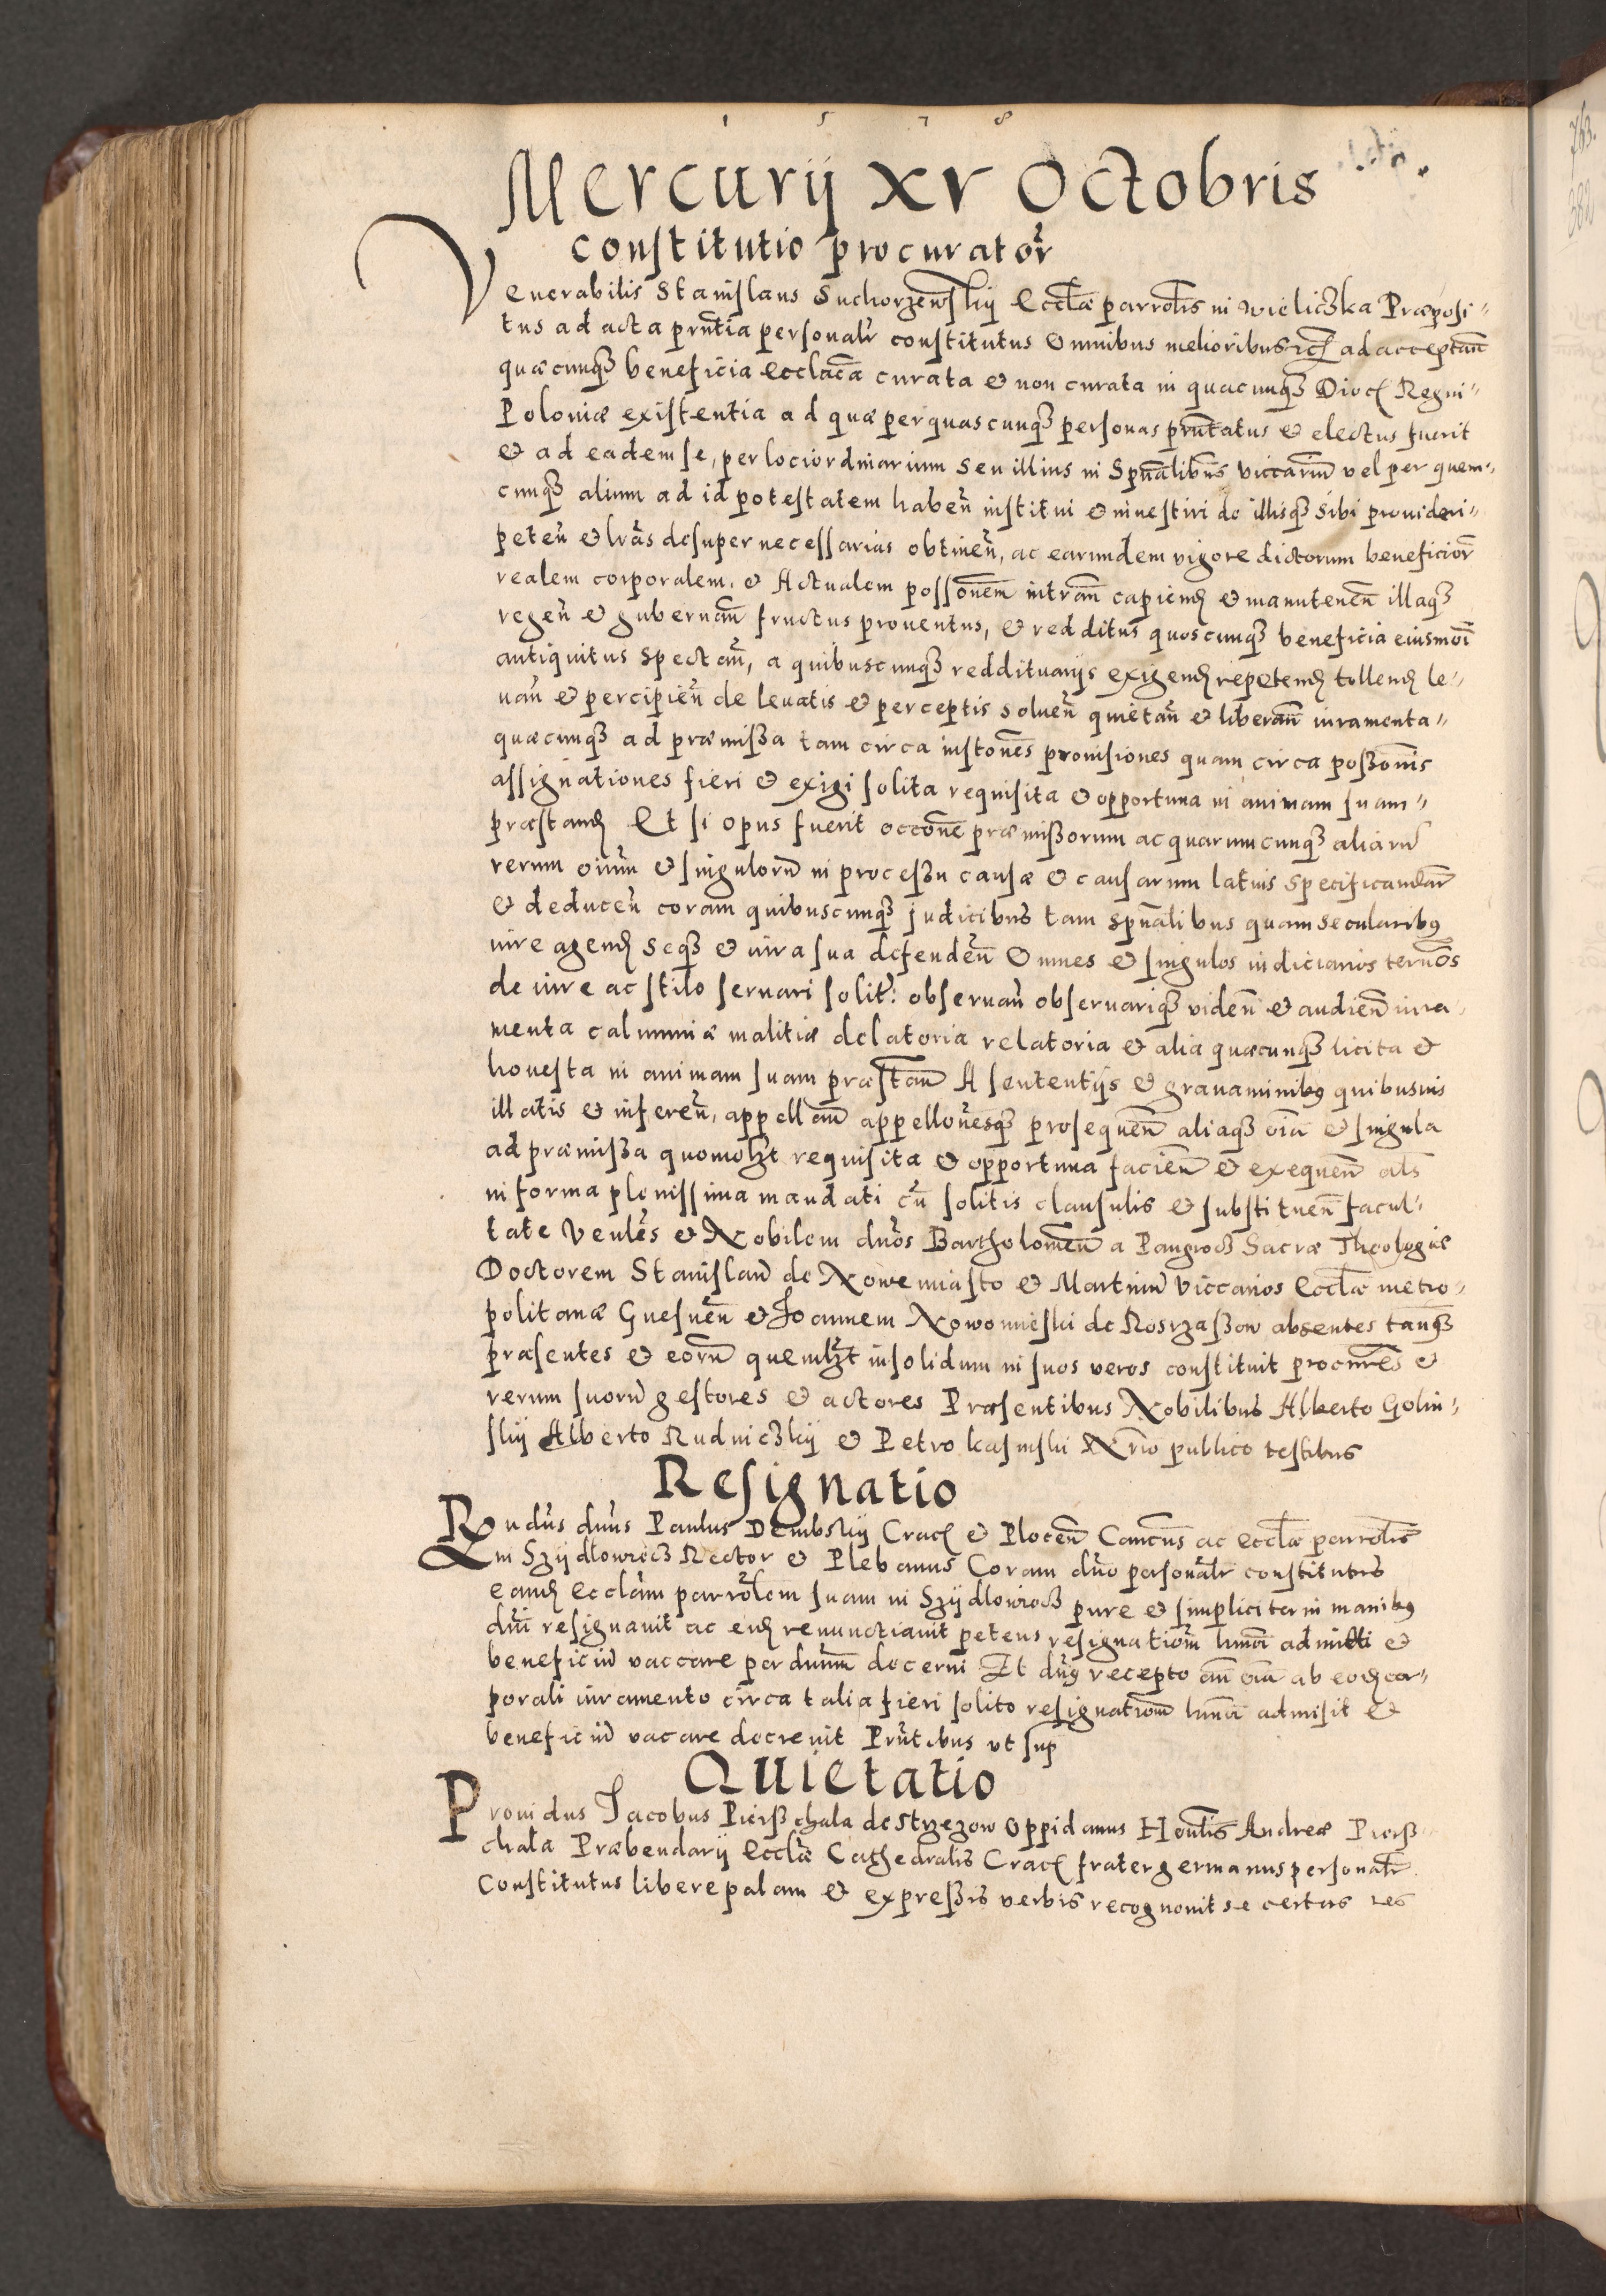 1 5 7 8
Mercurij xv Octobris
constitutio procurator̃
Venerabilis Stanislaus Suchorzewskij Eccl̃æ parrol̃is in Wieliczka Præposi-
tus ad acta prñtia personalr̃ constitutus Omnibus melioribus etc̃ ad acceptañ
quæcunq₃ beneficia eccl̃acã curata et non curata in quacunq₃ Dioc̃ Regni
Poloniæ existentia ad quæ per quascunq₃ personas prñtatus et electus fuerit
et ad eadem se, per loci ordinarium seu illius in Spũalibus viccariũ vel per quem-
cunq₃ alium ad id potestatem habeñ institui et inuestiri de illisq₃ sibi prouideri
peteñ et lr̃as desuper necessarias obtineñ, ac earundem vigore dictorum beneficior̃
realem corporalem, et Actualem possõnem intrañ capiend̃ et manuteneñ illaq₃
regeñ et gubernañ fructus prouentus, et redditus quoscunq₃ beneficia eiusmõi
antiquitus spectañ, a quibuscunq₃ reddituarijs exigend̃ repetend̃ tollend̃ le-
uañ et percipieñ de leuatis et perceptis solueñ quietañ et liberañ iuramenta
quæcunq₃ ad præmissa tam circa instõnes prouisiones quam circa possõnis
assignationes fieri et exigi solita requisita et opportuna in animam suam
præstand̃ Et si opus fuerit occõne præmissorum ac quarumcunq₃ aliarũ
rerum oĩum et singulorũ in processu causæ et causarum latius specificandar̃
et deduceñ coram quibuscunq₃ judicibus tam spũalibus quam secularibus
iure agend̃ seq₃ et iura sua defendeñ Omnes et singulos iudiciarios termõs
de iure ac stilo seruari solit̃: obseruañ obseruariq₃ videñ et audieñ iura-
menta calumniæ malitiæ delatoria relatoria et alia quæcunq₃ licita et
honesta in animam suam præstañ A sententijs et grauaminibus quibusuis
illatis et infereñ, appellañ appellõnesq₃ prosequeñ aliaq₃ oĩa et singula
ad præmissa quomolʒt requisita et opportuna facieñ et exequeñ al̃s
in forma plenissima mandati cũ solitis clausulis et substitueñ facul-
tate Venl̃es et Nobilem dños Bartholomeũ a Pangrocz Sacræ Theologiæ
Doctorem Stanislaũ de Nowemiasto et Martinũ viccarios Eccl̃æ metro-
politanæ Gnesneñ et Joannem Nowomieski de absentes tanq₃
præsentes et eorũ quemlʒt insolidum in suos veros constituit procur̃es et
rerum suorũ gestores et actores Præsentibus Nobilibus Alberto Golin-
skij Alberto Rudniczkij et Petro kasinski Nr̃io publico testibus
Resignatio
Rñdus dñus Paulus Dembskij Crac̃ et Ploceñ Cancũs ac eccl̃æ parrol̃is
in Szijdlowiecz Rector et Plebanus Coram dño personalr̃ constitutus
eand̃ eccl̃am parrol̃em suam in Szijdlowiecz pure et simpliciter in manibus
dñi resignauit ac eid̃ renunctiauit petens resignatiom̃ hmõi admitti et
beneficiũ vaccare per dñum decerni Et dñus recepto añ oĩa ab eod̃ cor-
porali iuramento circa talia fieri solito resignatiom̃ hmõi admisit et
beneficiũ vacare decreuit Prñtibus vt sup
Quietatio
Prouidus Jacobus Pierschala de Strzezow Oppidanus Honl̃is Andreæ Piers-
chala Præbendarij Eccl̃æ Cathedralis Crac̃ frater germanus personalr̃
Constitutus libere palam et expressis verbis recognouit se certas res